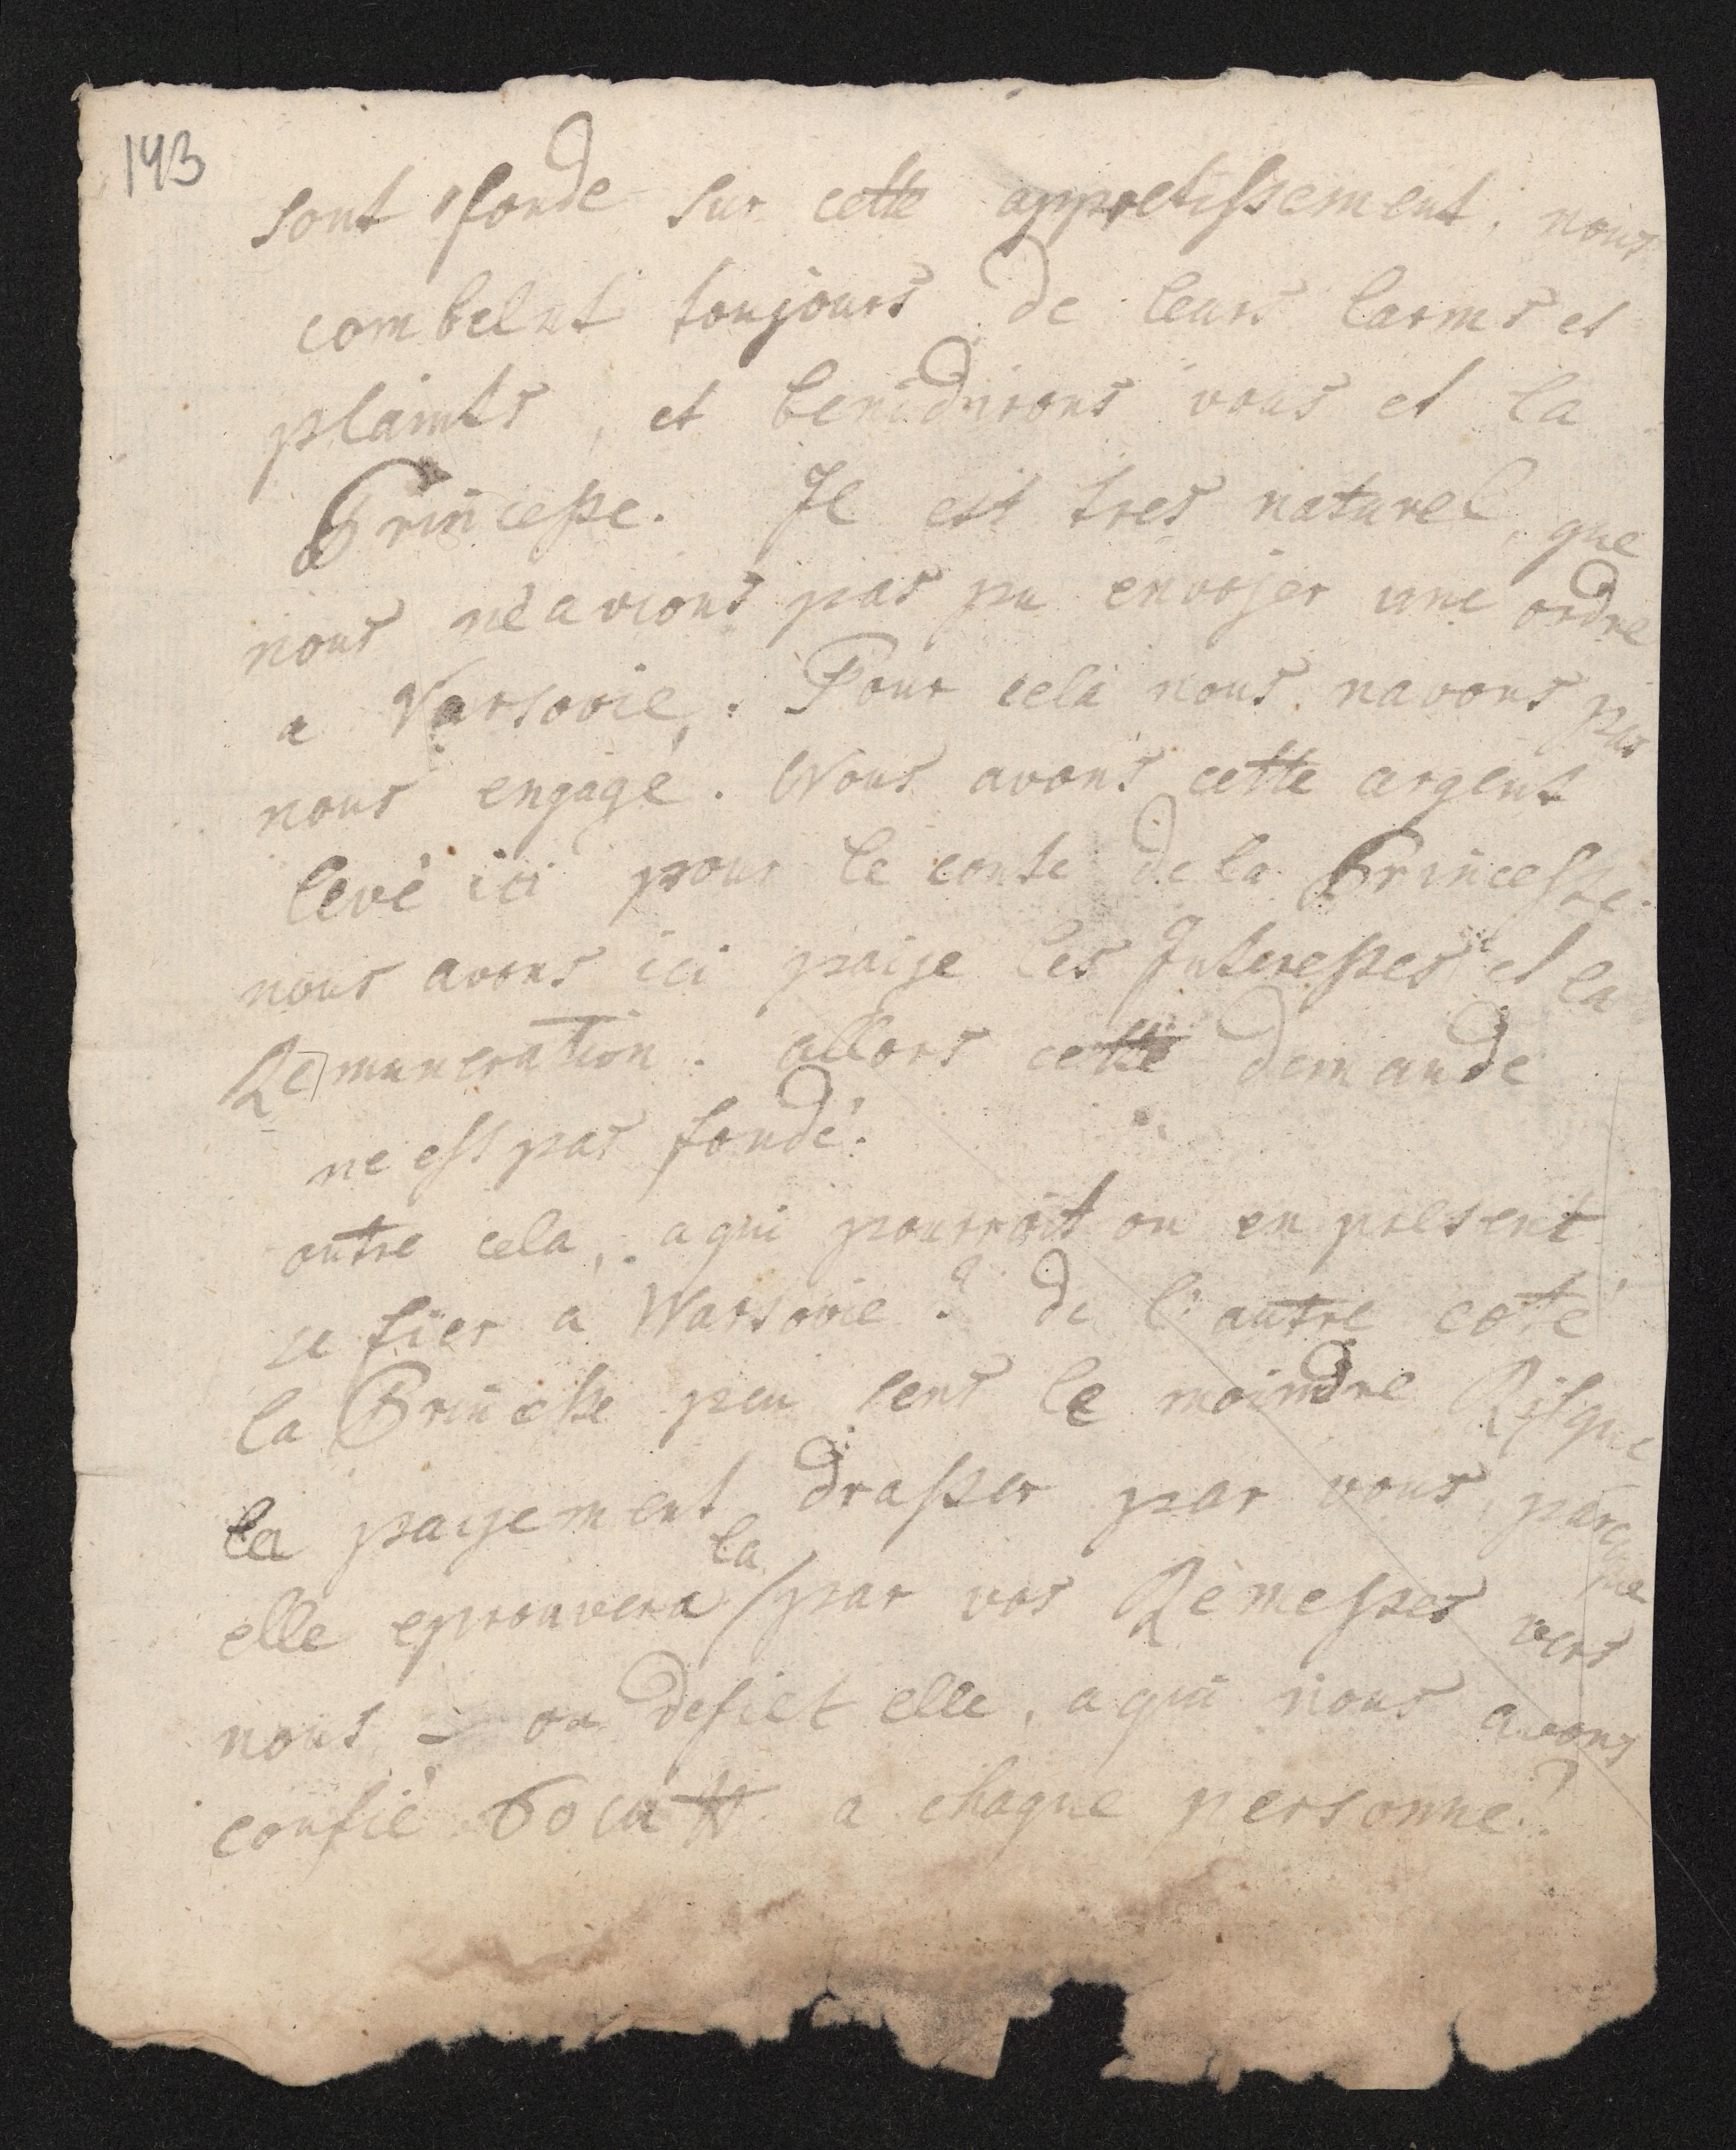 143
sont fonde sur cette appretissement, nous
combelnt toujours de leurs larms et
plaints, et benidirons vous et la
Princesse. Il est tres naturel, que
nous nèavions pas pu envojer une ordre
a Varsovie. Pour celà nous navons pas
nous engagé. Nous avons cette argent
levé ici pour le conte de la Princesse.
nous avons ici paije les Interesses et la
Remuneration. allors cette demande
ne est pas fondé.
outre cela, a qui pourroit on en present
se fier a Warsovie? de l'autre coté
la Princesse peu sens le moindre Risque
la payement drasser par vous, parceque
elle eprouvera la par vos Remesses vers
nous - ou defiet elle, a qui nous avons
confié a chaque personne?